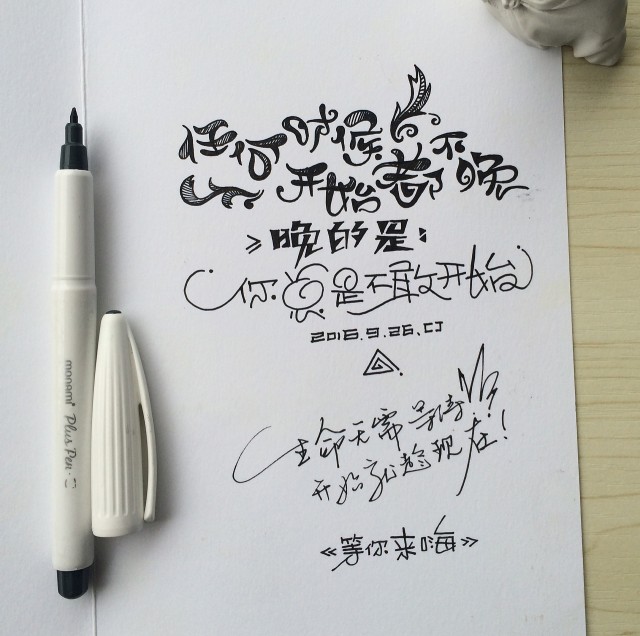 任何时候
开始都不晚
>晚的是：
你总是不敢开始
2016.9.26.CJ
生命无需等待
开始就趁现在！
《等你来嗨》
monami Plus Pen